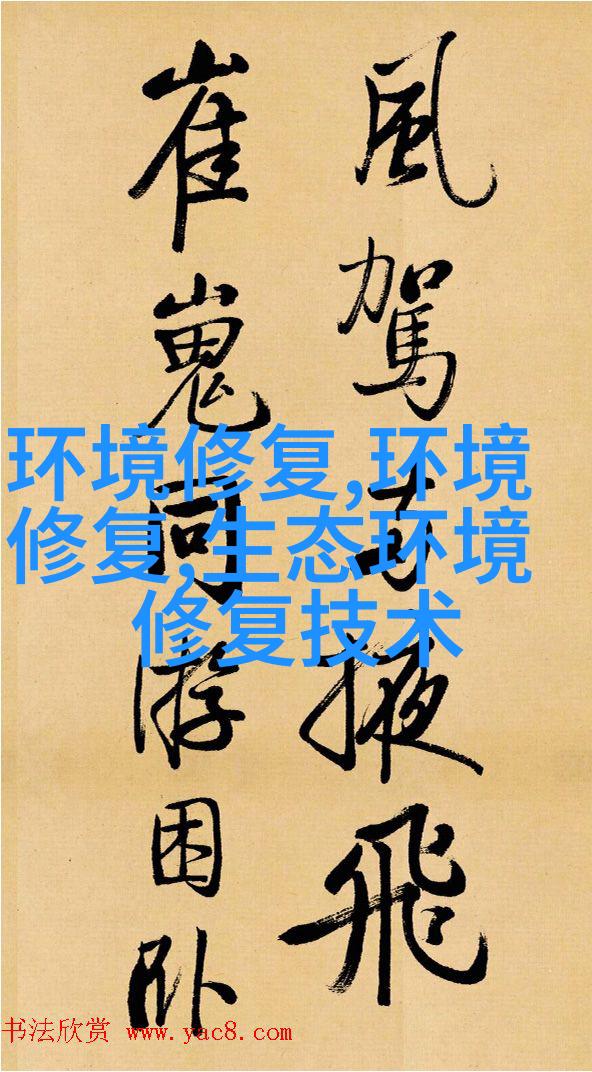 風駕掖飛
崔嵬同游困卧
环境修复,环境
修复,生态环境
修复技术
书法欣赏 www.yac8.com